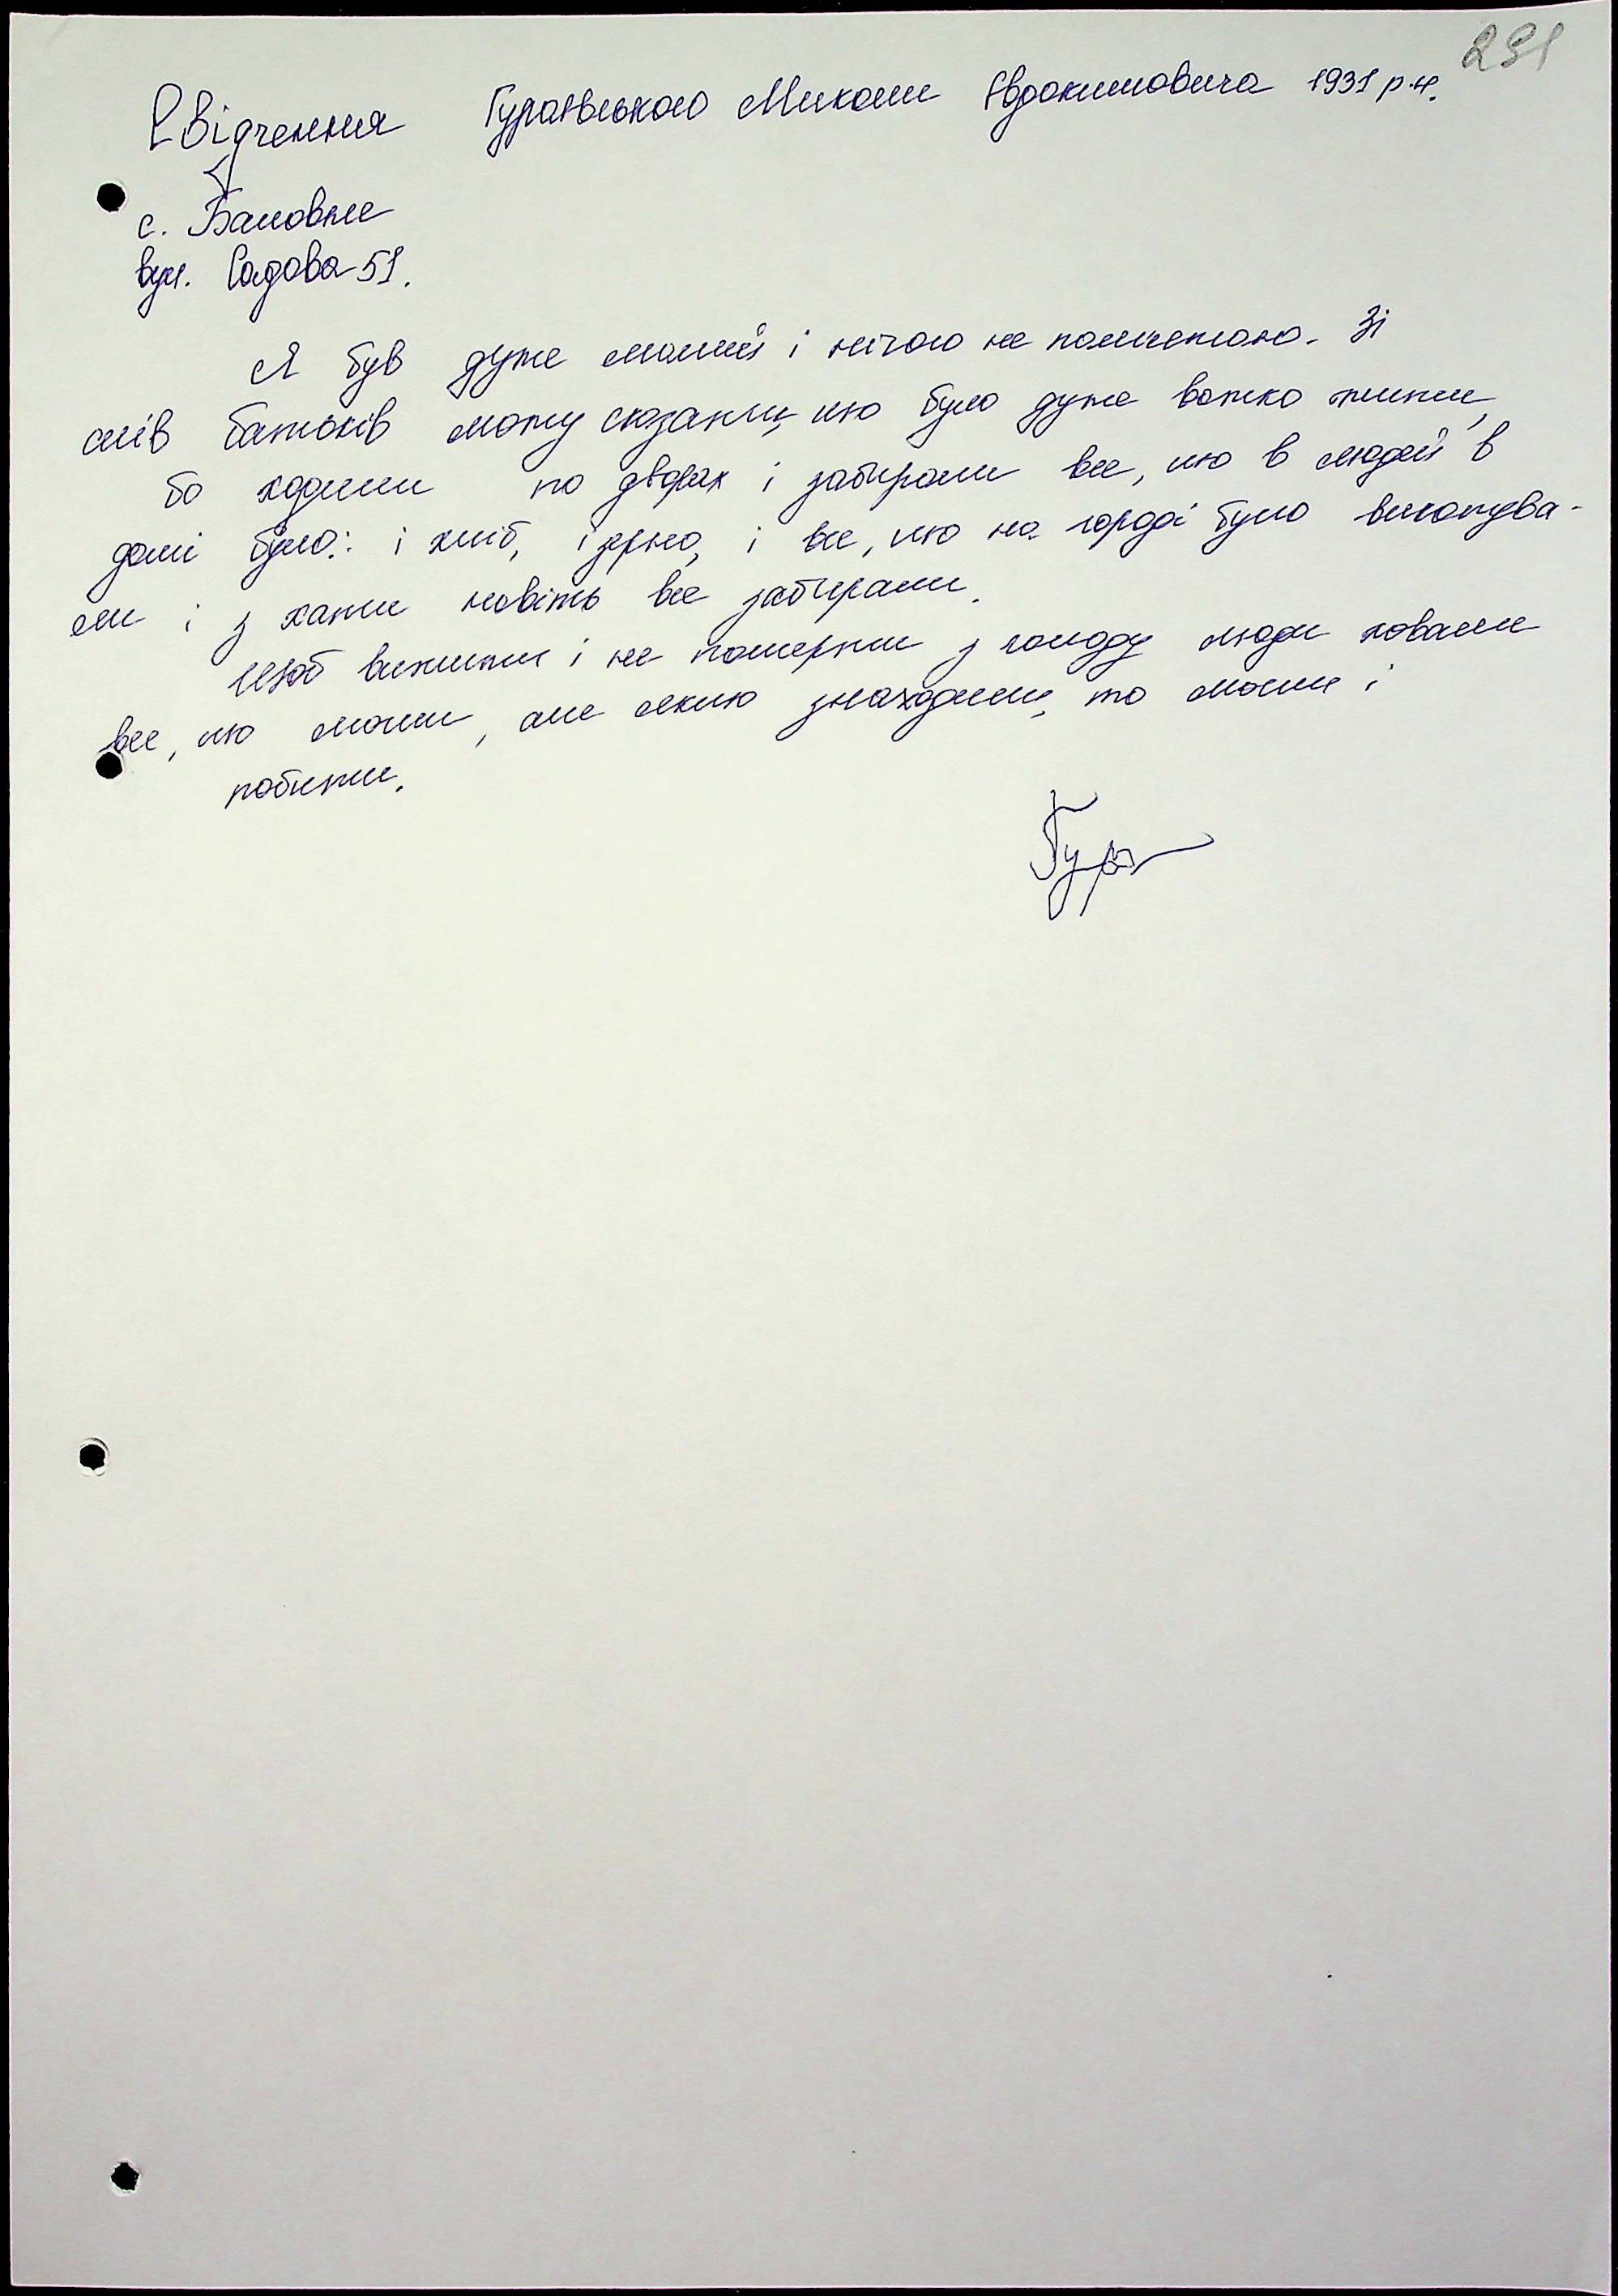 291
Свідчення Гураєвського Миколи Євдокимовича 1931 р.н.
с. Баловне
вул. Садова 51.
Я був дуже малий і нічого не памʼятаю. Зі
слів батьків можу сказати, що було дуже важко жити,
бо ходили по дворах і забирали все, що в людей в
домі було: і хліб, і зерно, і все, що на городі було викопува-
ли і з хати навіть все забирали.
Щоб вижити і не померти з голоду люди ховали
все, що мали, але якщо знаходили, то могли і
побити.